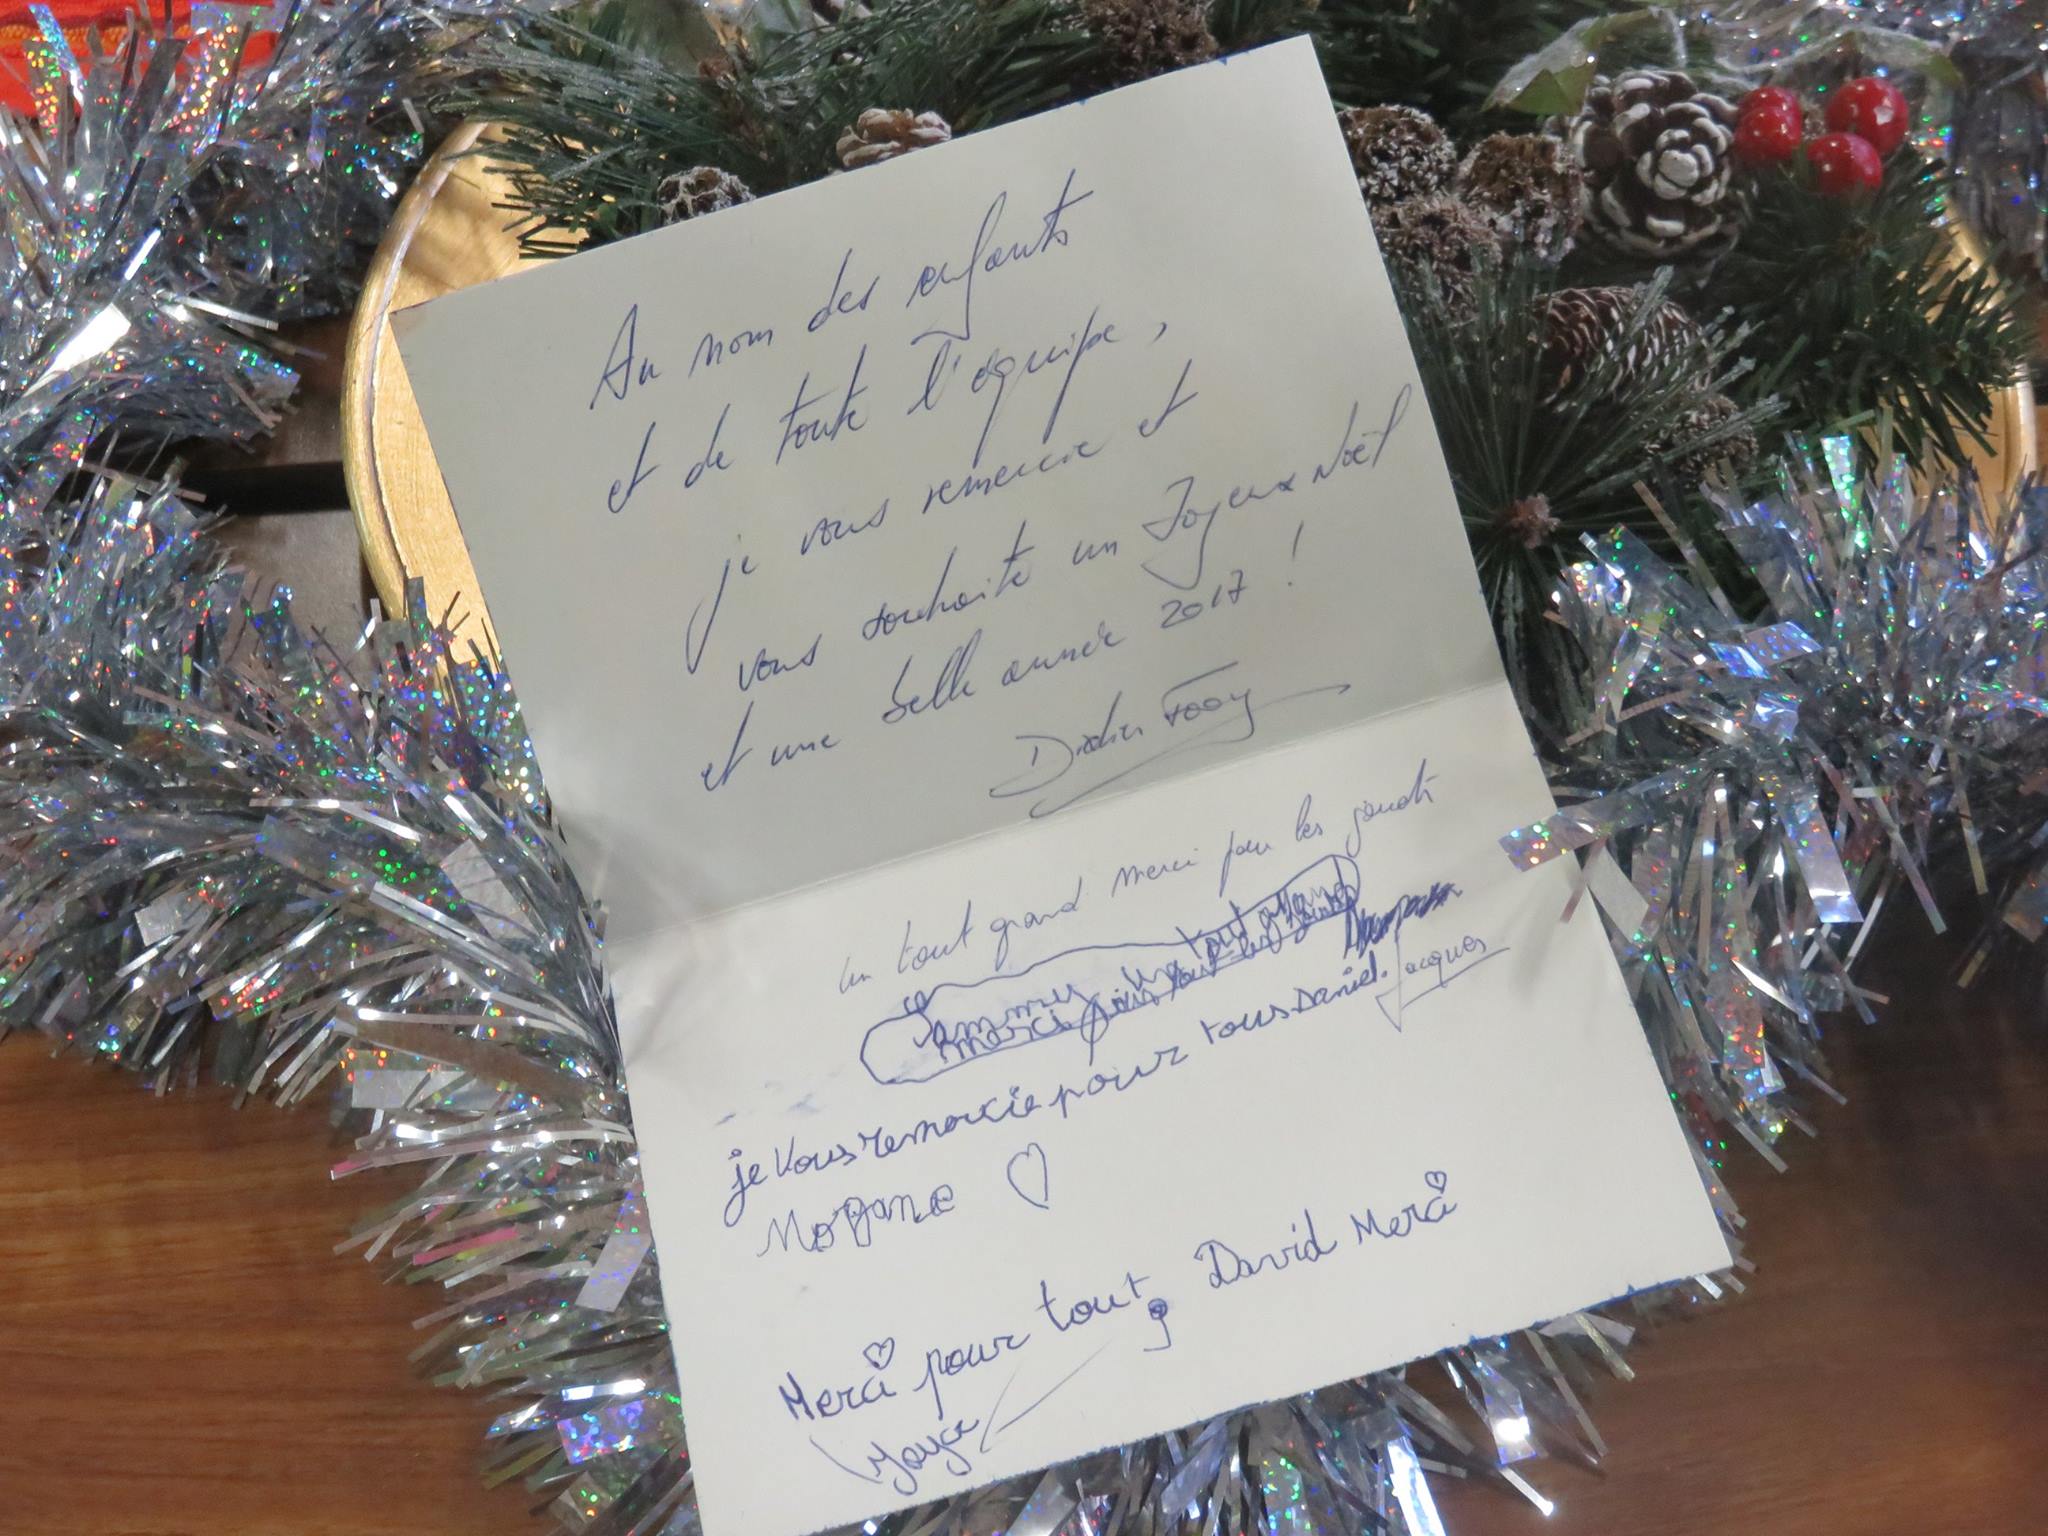 Au nom des enfants
et de toute l'équipe,
je vous remercie et
vous souhaite un Joyeux Noël
et une belle année 2017 !
Didier
un tout grand merci pour les jouets
Jacques
Sammy Un tout grand
merci pour les jouets
je vous remercie pour tous Daniel.
Morgane
Merci pour tout, David Merci